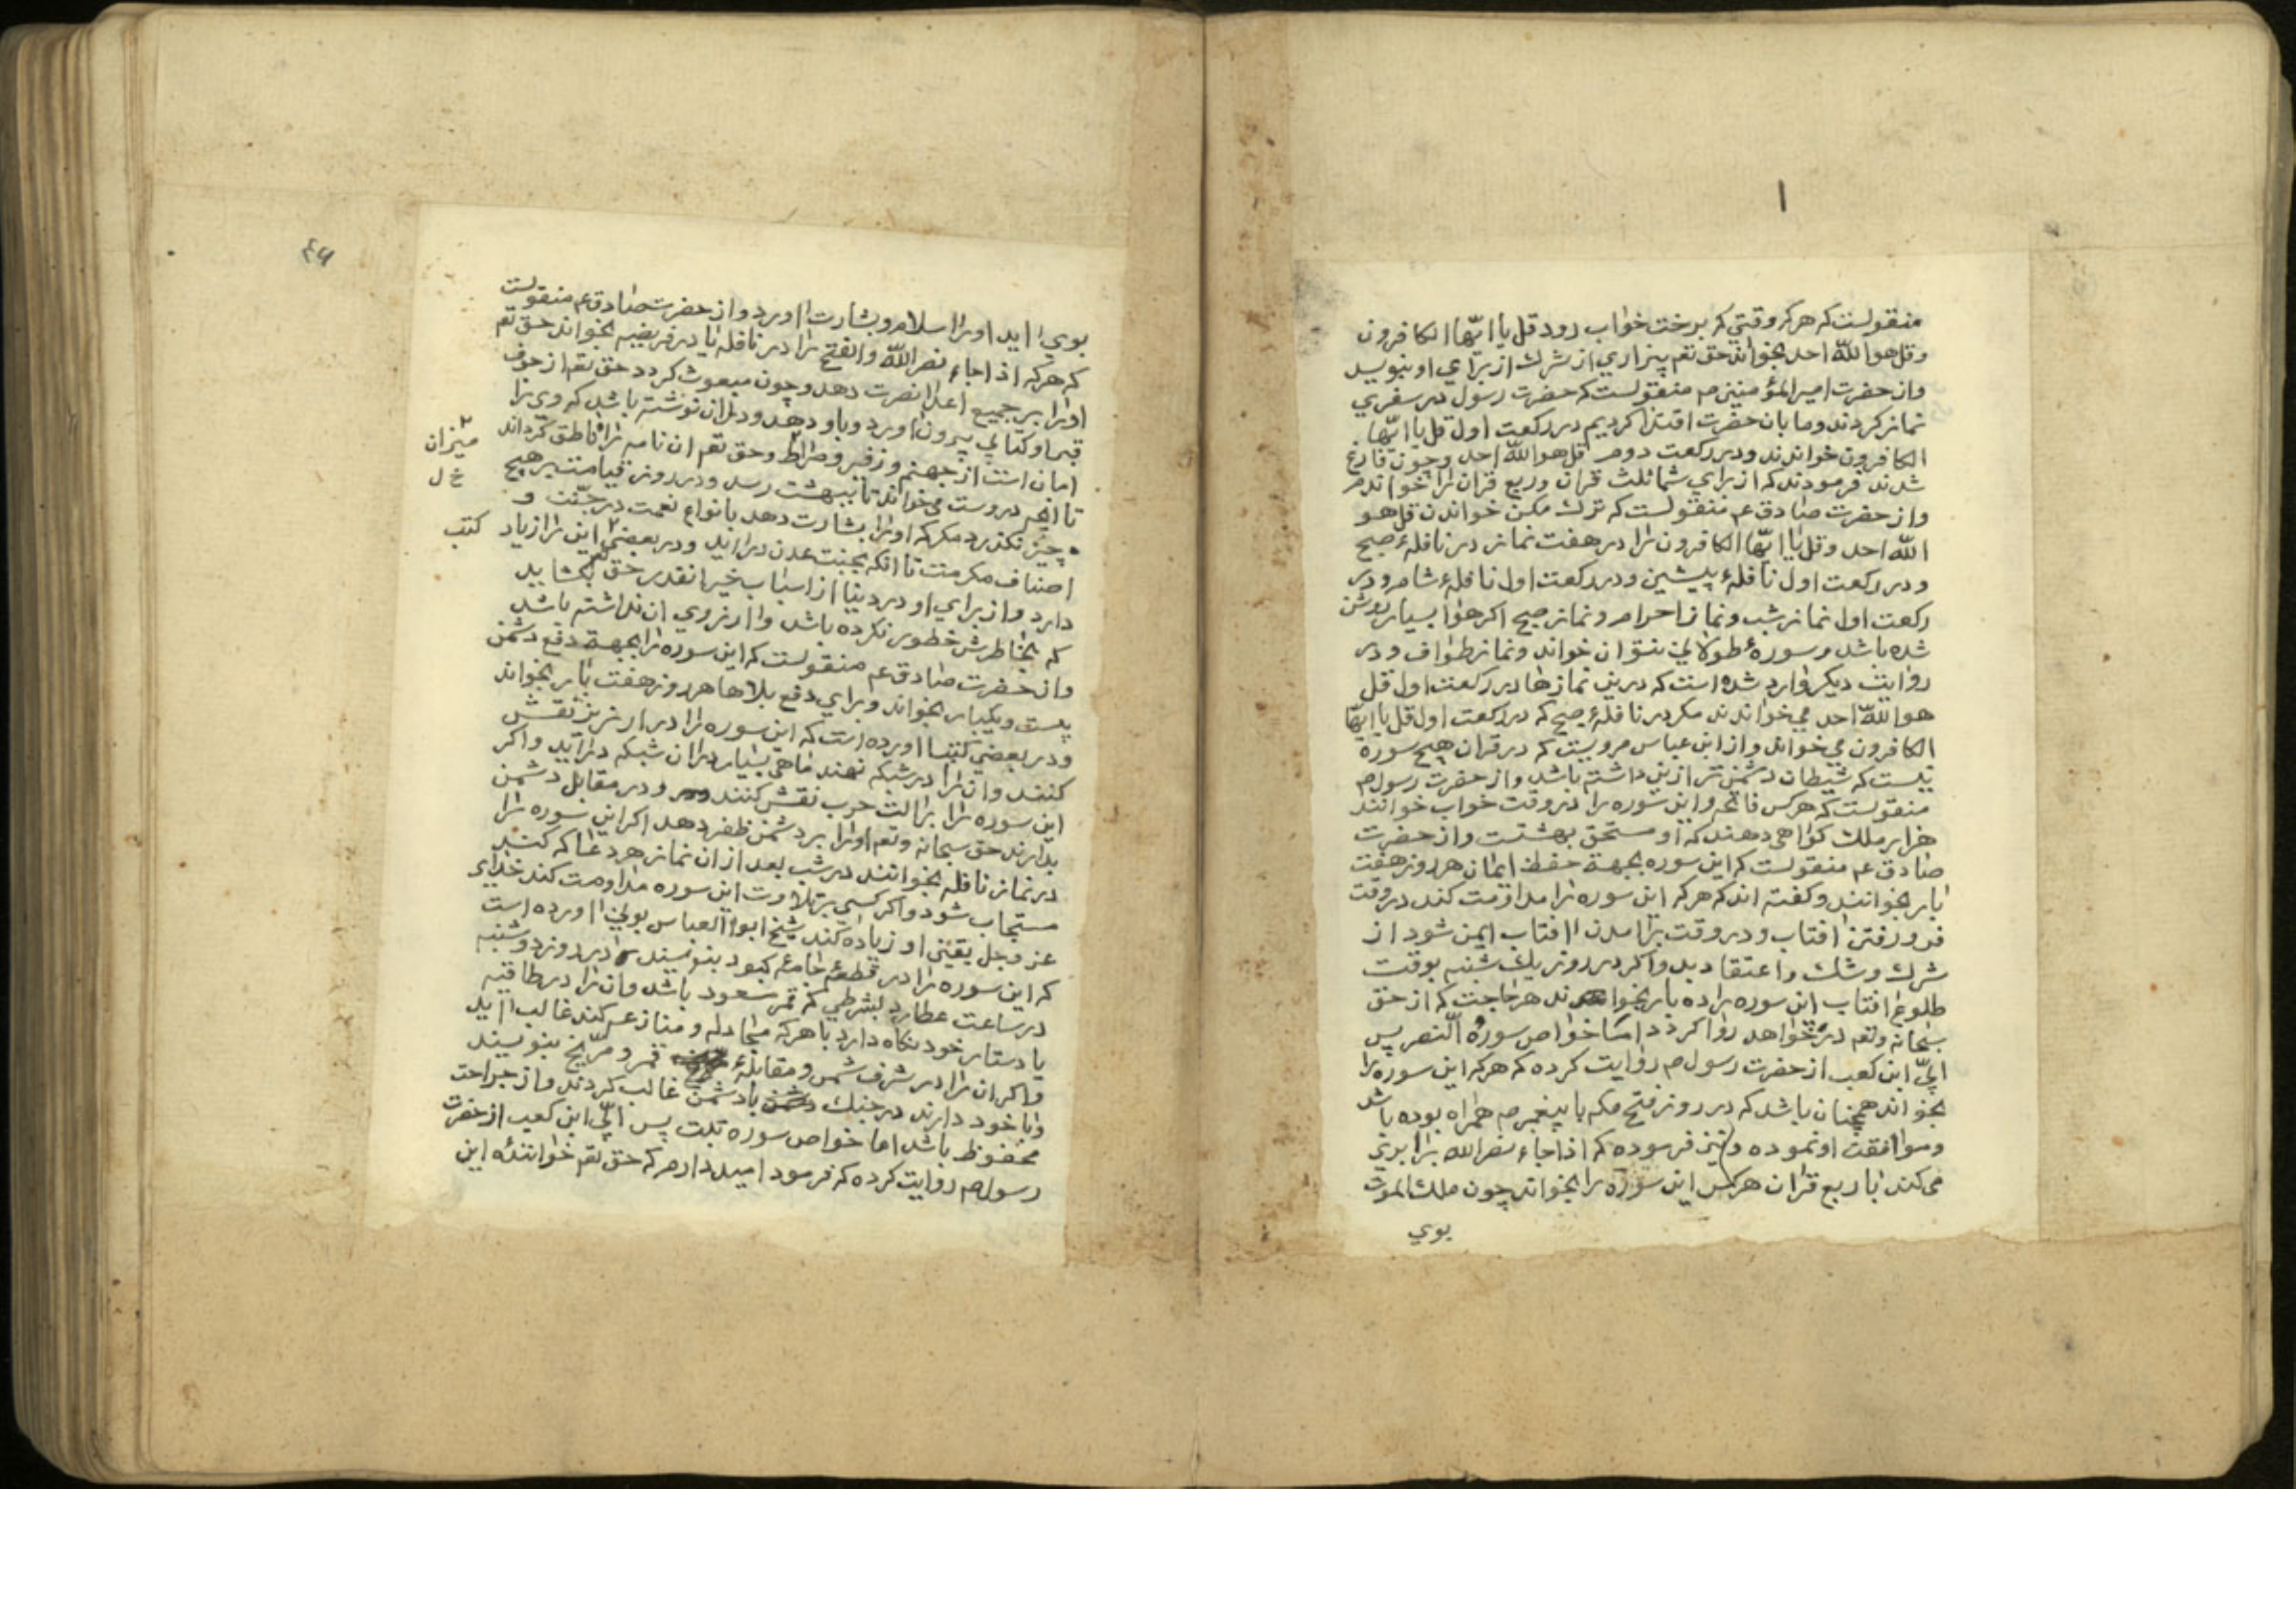 منقولست که هرکه وقتی که برخت خواب رود قل یا ایّها الکافرون
وقل هو اللّه احد بخواند حق تعم بیزاری از شرك از برای او بنویسد
واز حضرت امیر المؤمنین م منقولست که حضرت رسول در سفری
نماز کردند وما بان حضرت اقتدا کردیم در رکعت اول قل یا ایّها
الکافرون خواندند ودر رکعت دوم قل هو اللّه احد وچون فارغ
شدند فرمودند که از برای شما ثلث قران وربع قران را خواندم
واز حضرت صادق عم منقولست که ترك مکن خواندن قل هو
اللّه احد وقل یا ایّها الکافرون را در هفت نماز در نافلهٔ صبح
ودر رکعت اول نافلهٔ پیشین ودر رکعت اول نافلهٔ شام ودر
رکعت اول نماز شب ونماز احرام ونماز صبح اکر هوا بسیار روشن
شده باشد وسورهٔ طولانی نتوان خواند ونماز طواف ودر
روایت دیکر وارد شده است که درین نمازها در رکعت اول قل
هو اللّه احد می خواندند مکر در نافلهٔ صبح که در رکعت اول قل یا ایّها
الکافرون می خواند واز ابن عباس مرویست که در قران هیچ سورة
نیست که شیطان دشمن تر ازین داشته باشد واز حضرت رسول م
منقولست که هرکس فاتحه واین سوره را در وقت خواب خوانند
هزار ملك کواهی دهند که او مستحق بهشتت واز حضرت
صادق عم منقولست که این سوره بجهة حفظ ایمان هر روز هفت
بار بخوانند وکفته اند که هرکه این سوره را مداومت کند در وقت
فرو رفتن افتاب ودر وقت برامدن افتاب ایمن شود از
شرك وشك واعتقاد بد واکر در روز یك شنبه بوقت
طلوع افتاب این سوره را ده بار بخوانند هر حاجت که از حق
سبحانه وتعم درخواهد روا کردد اما خواص سورهٔ النّصر پس
ابیّ ابن کعب از حضرت رسول م روایت کرده که هرکه این سوره را
بخواند همچنان باشد که در روز فتح مکه با پیغمبر م همراه بوده باشد
وموافقت او نموده ونیز فرموده که اذا جاء نصر الله برابری
می کند با ربع قران هرکس این سوره را بخواند چون ملك الموت
بوی
۴۶
بوی اید اورا سلام وبشارت اورد واز حضرت صادق عم منقولست
که هرکه اذا جاء نصر اللّه والفتح را در نافله یا در فریضه بخواند حق تعم
اورا بر جمیع اعدا نصرت دهد وچون مبعوث کردد حق تعم از جوف
قبر او کتابی بیرون اورد وباو دهد ودران نوشته باشد که وی را
امان است از جهنم وزفیر وصراط وحق تعم ان نامه را ناطق کرداند
میزان
خ ل
تا انچه دروست می خواند تا ببهشت رسد ودر روز قیامت بر هیچ
چیز نکذرد مکر که اورا بشارت دهد بانواع نعمت در جنّت و
اصناف مکرمت تا انکه بجنت عدن دراید ودر بعضی این را زیاد
کتب
دارد واز برای او در دنیا از اسباب خیر انقدر حق تعم بکشاید
که بخاطرش خطور نکرده باشد وارزوی ان نداشته باشد
واز حضرت صادق عم منقولست که این سوره را بجهة دفع دشمن
بیست ویکبار بخواند وبرای دفع بلاها هر روز هفت بار بخواند
ودر بعضی کتبها اورده است که این سوره را در ارزیز نقش
کنند وان را در شبکه نهند ماهی بسیار دران شبکه دراید واکر
این سوره را بر الت حرب نقش کنند ودر مقابل دشمن
بدارند حق سبحانه وتعم اورا بر دشمن ظفر دهد اکر این سوره را
در نماز نافله بخوانند در شب بعد از ان نماز هر دعا که کنند
مستجاب شود واکر کسی بتلاوت این سوره مداومت کند خدای
عز وجل یقینی او زیاده کند شیخ ابوا العباس بونی اورده است
که این سوره را در قطعهٔ جامهٔ کبود بنویسند در روز دوشنبه
در ساعت عطارد بشرطی که قمر مسعود باشد وان را در طاقیه
یا دستار خود نکاه دارد با هرکه مجادله ومنازعه کند غالب اید
واکر ان را در شرف شمس ومقابلهٔ قمر ومرّیخ بنویسند
وبا خود دارند در جنك با دشمن غالب کردند واز جراحت
محفوظ باشد اما خواص سوره تبت پس ابیّ ابن کعب از حضرت
رسول م روایت کرده که فرمود امیددارم که حق تعم خوانندهٔ این